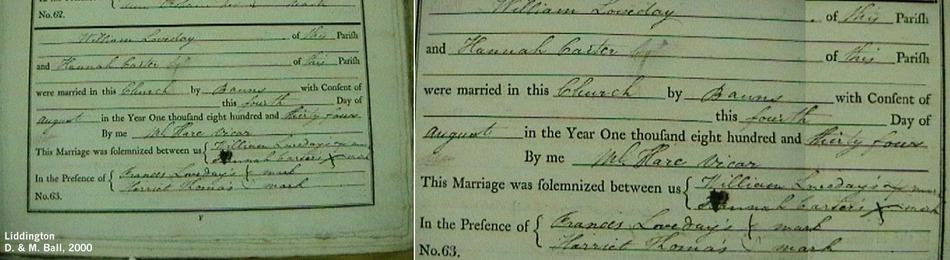 No.62.
William Loveday of this Parish
and Hannah Carter of this Parish
were married in this Church by Banns with Consent of
this fourth Day of
August in the Year One thouſand eight hundred and thirty four
By me Wm Hare Vicar
This Marriage was solemnized between us { William Loveday's x mark
Hannah Carter's X mark
In the Presence of { Frances Loveday's { mark
Harriet Thomas's mark
No.63.
Liddington
D. & M. Ball, 2000
William Loveday of this Parish
and Hannah Carter of this Parish
were married in this Church by Banns with Consent of
this fourth Day of
August in the Year One thouſand eight hundred and thirty four
By me Wm Hare Vicar
This Marriage was solemnized between us { William Loveday's x mark
Hannah Carter's X mark
In the Presence of { Frances Loveday's { mark
Harriet Thomas's mark
No.63.